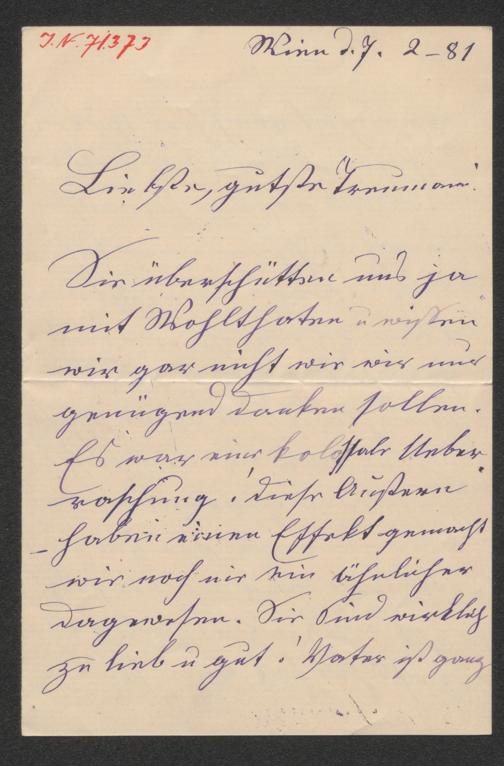 I.N. 71.373
Wien d. 7. 2 – 81
Liebste, gutste Treumani!
Sie überschütten uns ja
mit Wohlthaten u wissen
wir gar nicht wie wir nur
genügend danken sollen.
Es war eine kolossale Ueber
raschung! diese Austern
haben einen Effekt gemacht
wie noch nie ein ähnlicher
dagewesen. Sie sind wirklich
zu lieb u gut! Vater ist ganz